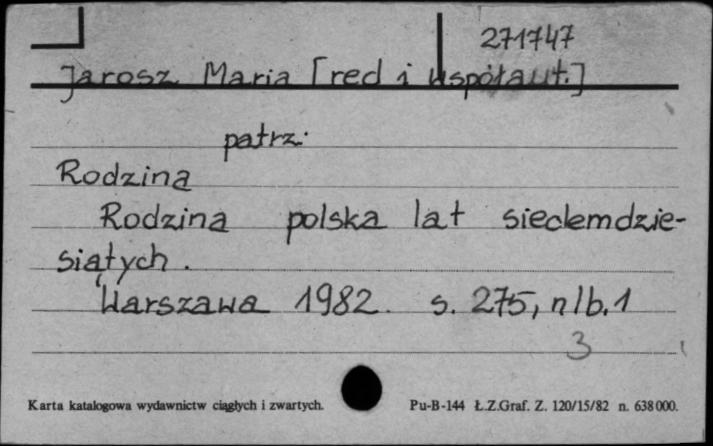 271747
Jarosz Maria [red i współaut.]
patrz:
Rodzina
Rodzina polska lat siedemdzie-
siątych.
Warszawa 1982. s. 275, nlb. 1
3
Karta katalogowa wydawnictw ciągłych i zwartych. Pu-B-144 Ł.Z.Graf. Z. 120/15/82 n. 638000.